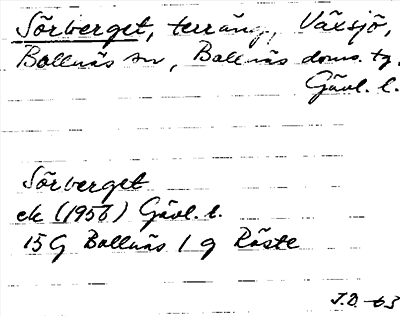 Sörberget, terräng, Växsjö,
Bollnäs sn, Bollnäs doms. tg.
Gävl. l.
Sörberget
ek (1956) Gävl. l.
15G Bollnäs 1 g Röste
J.D. -63